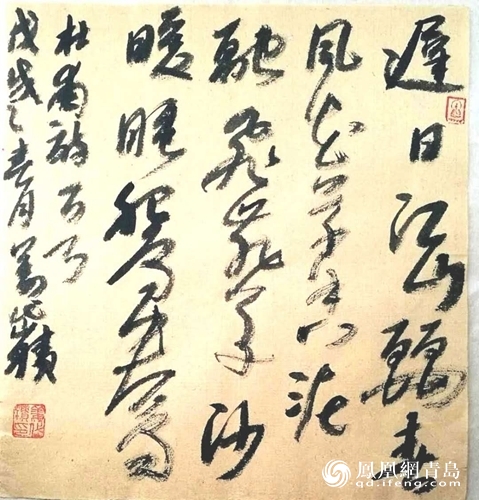 遲日江山麗春
風花草香泥
融飛燕子沙
暖睡鴛鴦
杜甫詩
戊戌之春月
鳳凰網青島
qd.ifeng.com